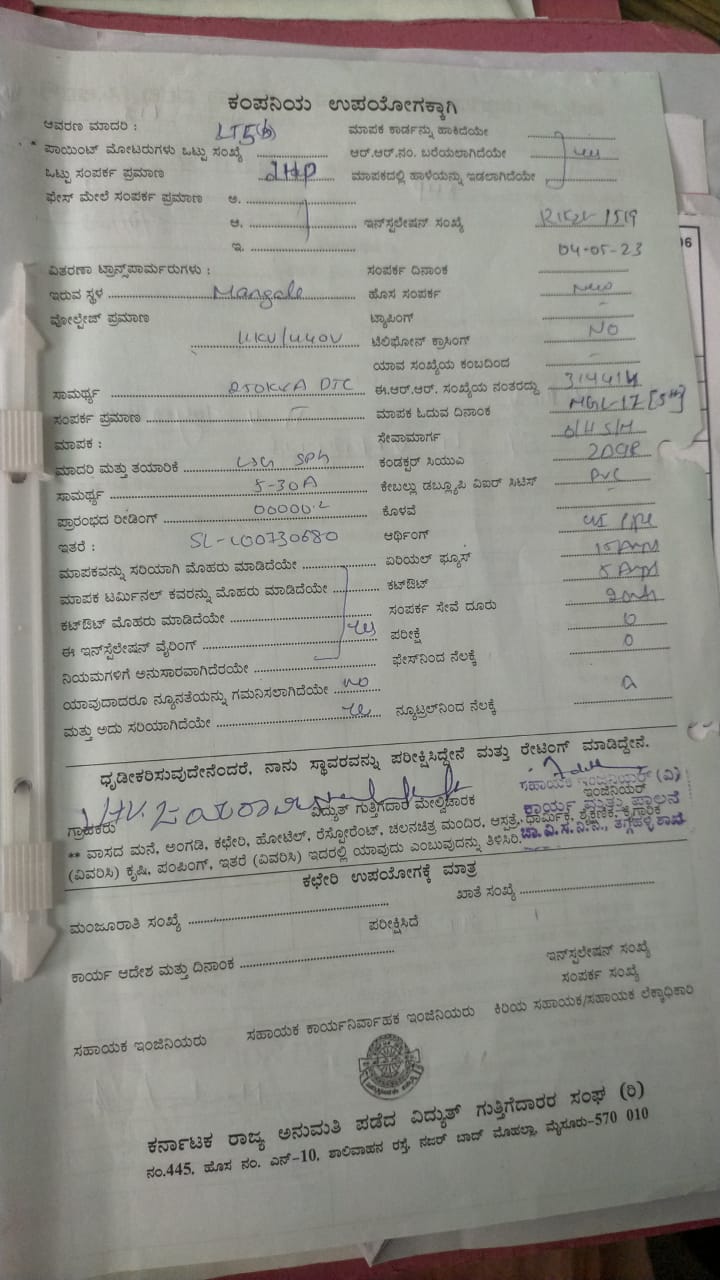 ಕಂಪನಿಯ ಉಪಯೋಗಕ್ಕಾಗಿ
ಆವರಣ ಮಾದರಿ : LT5(b) ಮಾಪಕ ಕಾರ್ಡನ್ನು ಹಾಕಿದೆಯೇ
ಪಾಯಿಂಟ್ ಮೋಟರುಗಳು ಒಟ್ಟು ಸಂಖ್ಯೆ ಆರ್.ಆರ್.ನಂ. ಬರೆಯಲಾಗಿದೆಯೇ
ಒಟ್ಟು ಸಂಪರ್ಕ ಪ್ರಮಾಣ ಮಾಪಕದಲ್ಲಿ ಹಾಳೆಯನ್ನು ಇಡಲಾಗಿದೆಯೇ
ಫೇಸ್ ಮೇಲೆ ಸಂಪರ್ಕ ಪ್ರಮಾಣ ಅ.
ಆ. ಇನ್‌ಸ್ಟಲೇಷನ್ ಸಂಖ್ಯೆ 1519
ಇ. 04-05-23
ವಿತರಣಾ ಟ್ರಾನ್ಸ್‌ಫಾರ್ಮರುಗಳು : ಸಂಪರ್ಕ ದಿನಾಂಕ
ಇರುವ ಸ್ಥಳ Mangala ಹೊಸ ಸಂಪರ್ಕ New
ವೋಲ್ಟೇಜ್ ಪ್ರಮಾಣ 11KV/440V ಟ್ಯಾಪಿಂಗ್
ಟೆಲಿಫೋನ್ ಕ್ರಾಸಿಂಗ್ NO
ಯಾವ ಸಂಖ್ಯೆಯ ಕಂಬದಿಂದ
ಸಾಮರ್ಥ್ಯ 250KVA DTC ಈ.ಆರ್.ಆರ್. ಸಂಖ್ಯೆಯ ನಂತರದ್ದು
ಸಂಪರ್ಕ ಪ್ರಮಾಣ ಮಾಪಕ ಓದುವ ದಿನಾಂಕ MGL-17
ಮಾಪಕ : ಸೇವಾಮಾರ್ಗ O/H S/M
ಮಾದರಿ ಮತ್ತು ತಯಾರಿಕೆ ಕಂಡಕ್ಟರ್ ಸಿಯುಎ
ಸಾಮರ್ಥ್ಯ 5-30A ಕೇಬಲ್ಲು ಡಬ್ಲ್ಯೂಪಿ ವಿಐಆರ್ ಸಿಟಿಸ್ PVC
ಪ್ರಾರಂಭದ ರೀಡಿಂಗ್ 00000.2 ಕೊಳವೆ
ಇತರೆ : ಅರ್ಥಿಂಗ್ pipe
ಮಾಪಕವನ್ನು ಸರಿಯಾಗಿ ಮೊಹರು ಮಾಡಿದೆಯೇ ಏರಿಯಲ್ ಫ್ಯೂಸ್ 15 Amps
ಮಾಪಕ ಟರ್ಮಿನಲ್ ಕವರನ್ನು ಮೊಹರು ಮಾಡಿದೆಯೇ ಕಟ್‌ಔಟ್ 5 Amps
ಕಟ್‌ಔಟ್ ಮೊಹರು ಮಾಡಿದೆಯೇ ಸಂಪರ್ಕ ಸೇವೆ ದೂರು
ಈ ಇನ್‌ಸ್ಟೆಲೇಷನ್ ವೈರಿಂಗ್ yes ಪರೀಕ್ಷೆ
ನಿಯಮಗಳಿಗೆ ಅನುಸಾರವಾಗಿದೆರಯೇ ಫೇಸ್‌ನಿಂದ ನೆಲಕ್ಕೆ 0
ಯಾವುದಾದರೂ ನ್ಯೂನತೆಯನ್ನು ಗಮನಿಸಲಾಗಿದೆಯೇ no
ಮತ್ತು ಅದು ಸರಿಯಾಗಿದೆಯೇ yes ನ್ಯೂಟ್ರಲ್‌ನಿಂದ ನೆಲಕ್ಕೆ
ಧೃಡೀಕರಿಸುವುದೇನೆಂದರೆ, ನಾನು ಸ್ಥಾವರವನ್ನು ಪರೀಕ್ಷಿಸಿದ್ದೇನೆ ಮತ್ತು ರೇಟಿಂಗ್ ಮಾಡಿದ್ದೇನೆ.
ಸಹಾಯಕ ಇಂಜಿನಿಯರ್ (ವಿ)
ಗ್ರಾಹಕರು ವಿದ್ಯುತ್ ಗುತ್ತಿಗೆದಾರ ಮೇಲ್ವಿಚಾರಕ ಇಂಜಿನಿಯರ್
ಕಾರ್ಯ ಮತ್ತು ಪಾಲನೆ
** ವಾಸದ ಮನೆ, ಅಂಗಡಿ, ಕಛೇರಿ, ಹೋಟೆಲ್, ರೆಸ್ಟೋರೆಂಟ್, ಚಲನಚಿತ್ರ ಮಂದಿರ, ಆಸ್ಪತ್ರೆ, ಧಾರ್ಮಿಕ, ಶೈಕ್ಷಣಿಕ, ಕೈಗಾರಿಕೆ
(ವಿವರಿಸಿ) ಕೃಷಿ, ಪಂಪಿಂಗ್, ಇತರೆ (ವಿವರಿಸಿ) ಇದರಲ್ಲಿ ಯಾವುದು ಎಂಬುವುದನ್ನು ತಿಳಿಸಿರಿ.
ಕಛೇರಿ ಉಪಯೋಗಕ್ಕೆ ಮಾತ್ರ
ಮಂಜೂರಾತಿ ಸಂಖ್ಯೆ ಖಾತೆ ಸಂಖ್ಯೆ
ಪರೀಕ್ಷಿಸಿದೆ
ಕಾರ್ಯ ಆದೇಶ ಮತ್ತು ದಿನಾಂಕ ಇನ್‌ಸ್ಟಲೇಷನ್ ಸಂಖ್ಯೆ
ಸಂಪರ್ಕ ಸಂಖ್ಯೆ
ಸಹಾಯಕ ಇಂಜಿನಿಯರು ಸಹಾಯಕ ಕಾರ್ಯನಿರ್ವಾಹಕ ಇಂಜಿನಿಯರು ಕಿರಿಯ ಸಹಾಯಕ/ಸಹಾಯಕ ಲೆಕ್ಕಾಧಿಕಾರಿ
ಕರ್ನಾಟಕ ರಾಜ್ಯ ಅನುಮತಿ ಪಡೆದ ವಿದ್ಯುತ್ ಗುತ್ತಿಗೆದಾರರ ಸಂಘ (ರಿ)
ನಂ.445, ಹೊಸ ನಂ. ಎನ್-10, ಶಾಲಿವಾಹನ ರಸ್ತೆ, ನಜರ್ ಬಾದ್ ಮೊಹಲ್ಲಾ, ಮೈಸೂರು-570 010